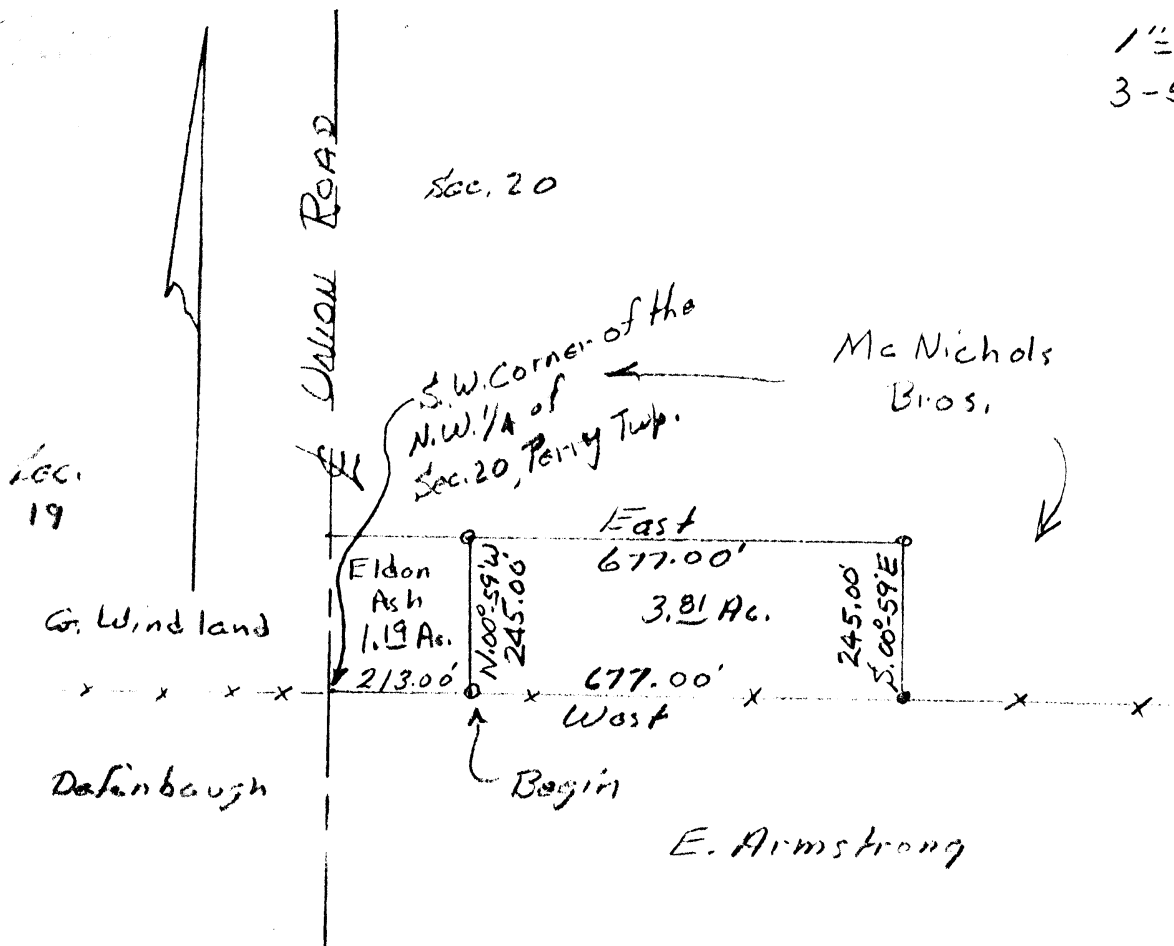 1"=
3-5
UNION ROAD
Sec. 20
S.W. Corner of the
N.W. 1/4 of
Sec. 20, Perry Twp.
Mc Nichols
Bros.
Sec.
19
East
677.00'
Eldon
Ash
1.19 Ac.
213.00'
N.00°-59'W
245.00'
3.81 Ac.
245.00'
S.00°-59'E
G. Windland
677.00'
West
Defenbaugh
Begin
E. Armstrong